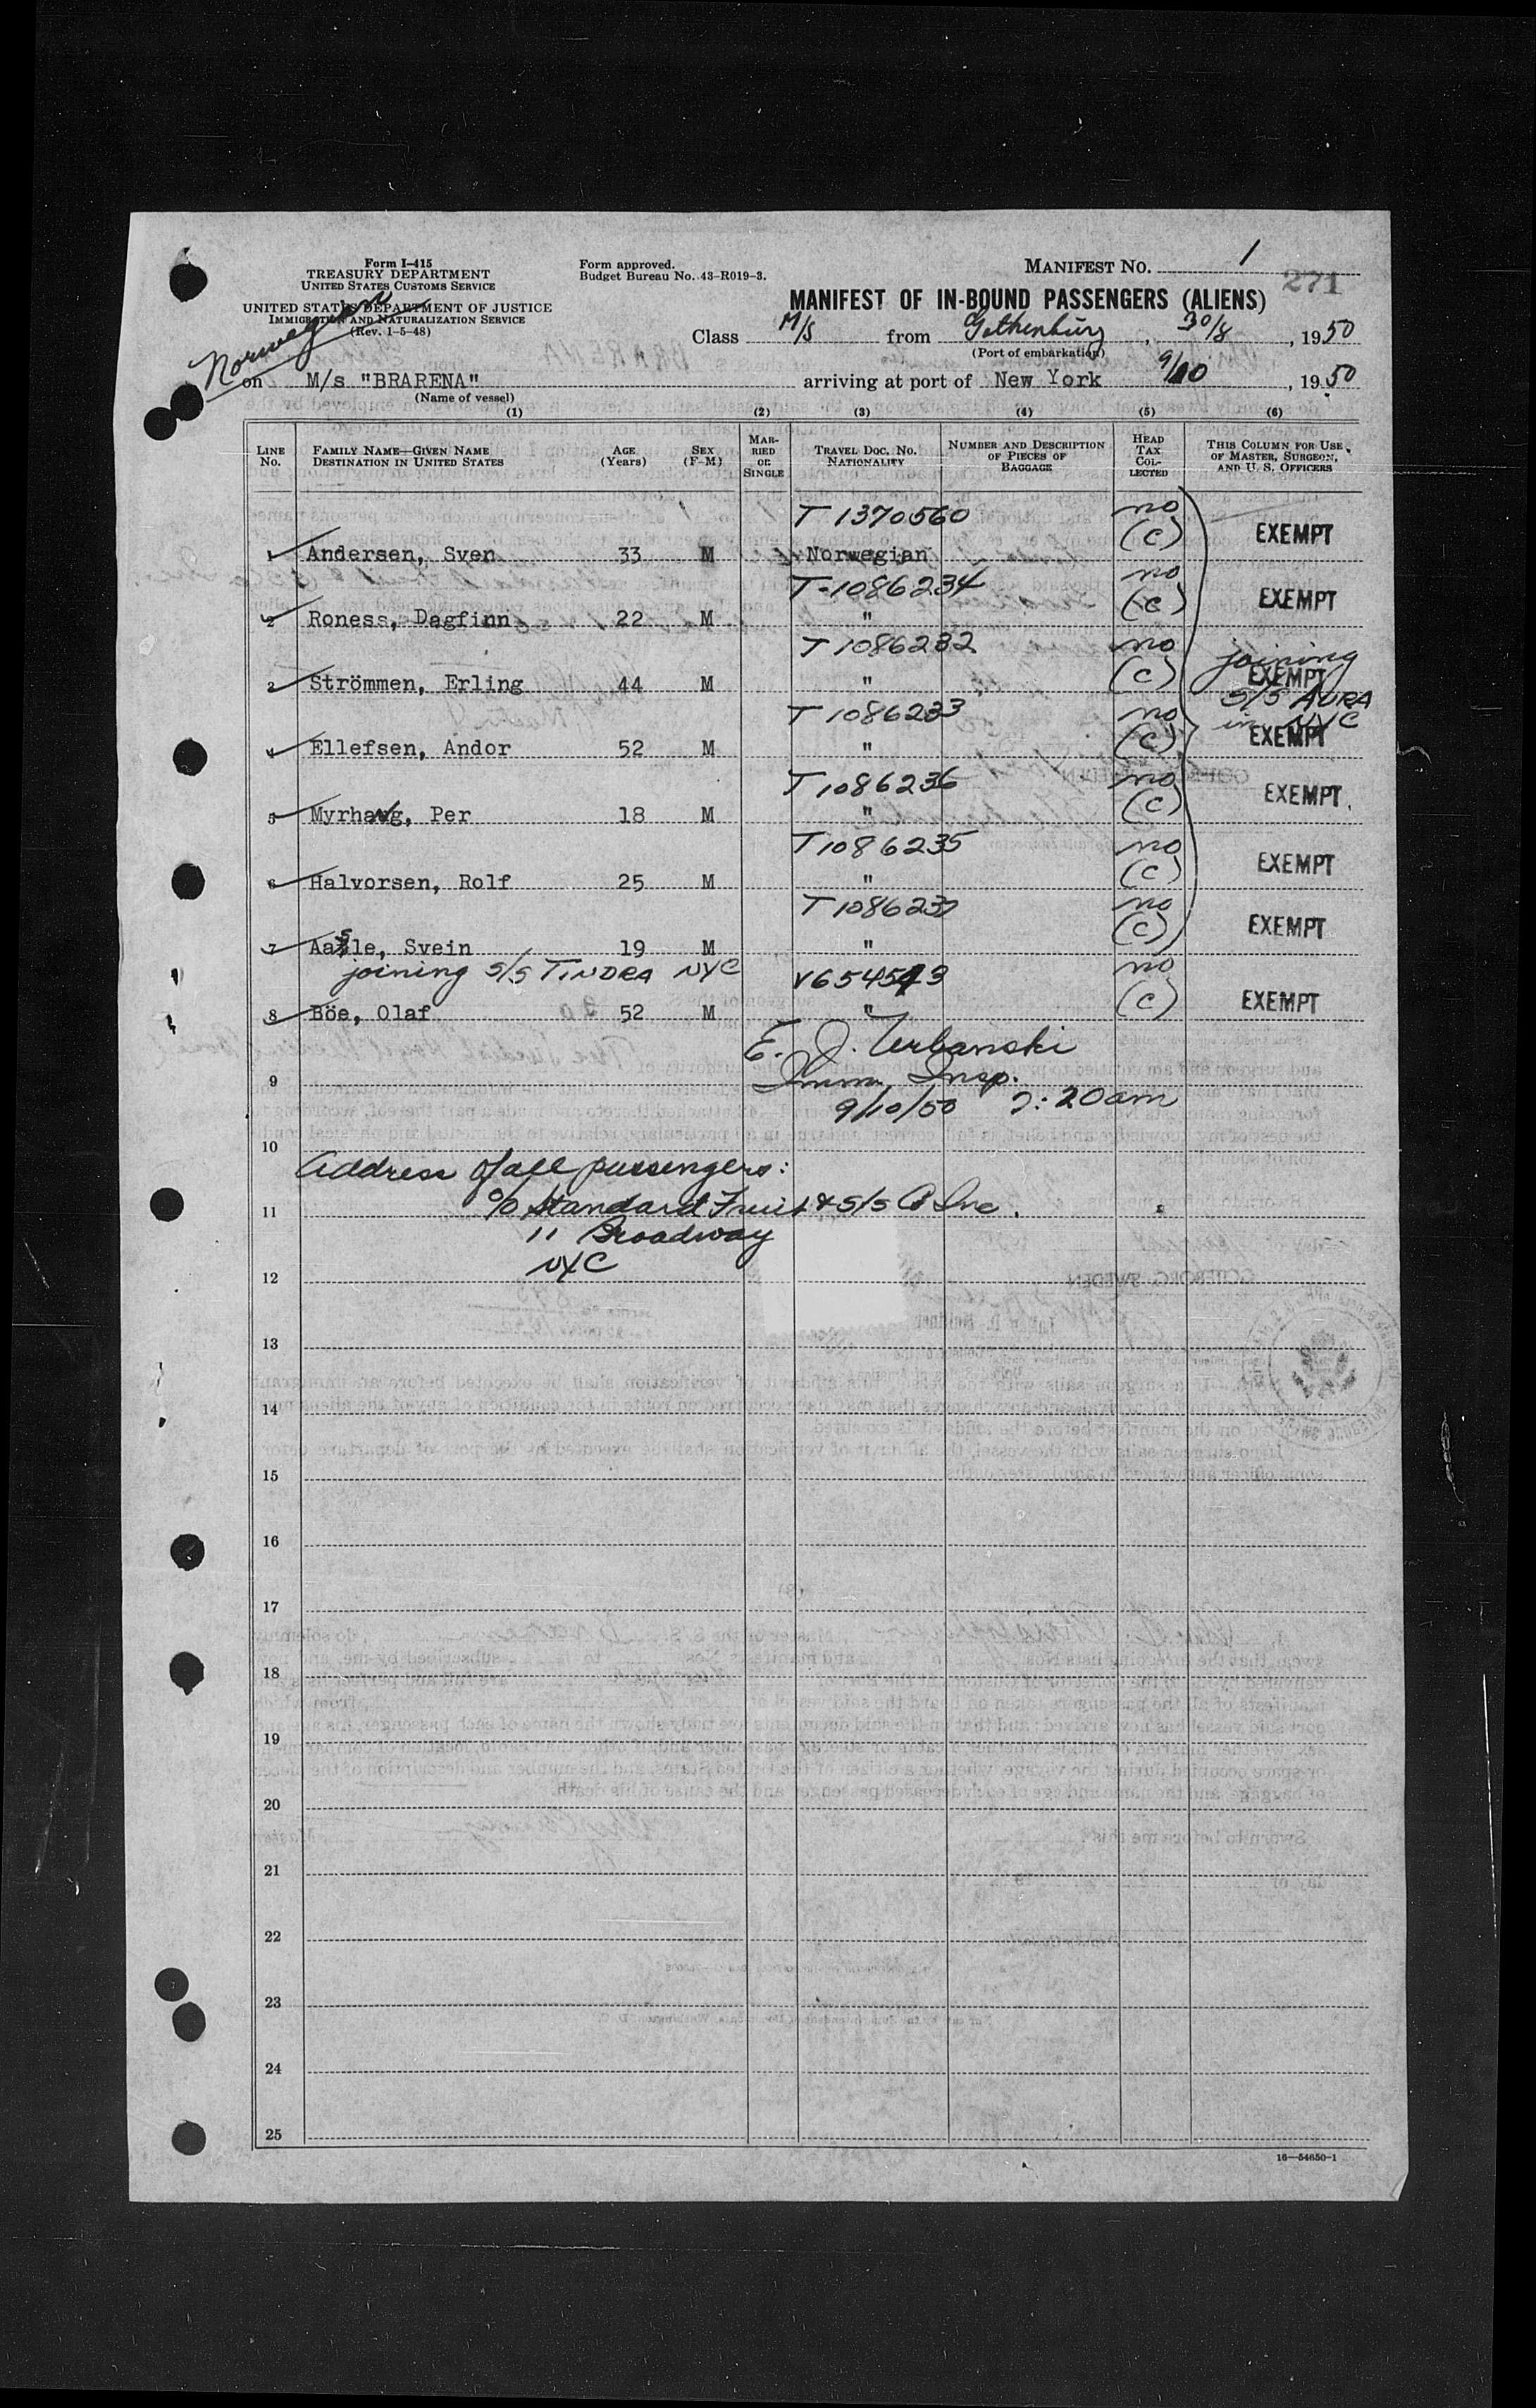 Form I-415
TREASURY DEPARTMENT
UNITED STATES CUSTOMS SERVICE
UNITED STATES DEPARTMENT OF JUSTICE
IMMIGRATION AND NATURALIZATION SERVICE
(Rev. 1-5-48)
Norwegian
Form approved.
Budget Bureau No. 43-R019-3.
MANIFEST NO. 1
271
MANIFEST OF IN-BOUND PASSENGERS (ALIENS)
Class M/S from Gothenburg, 30/8, 1950
(Port of embarkation)
on M/s "BRARENA" arriving at port of New York 9/10, 1950
(Name of vessel)
(1) (2) (3) (4) (5) (6)
LINE NO. FAMILY NAME—GIVEN NAME DESTINATION IN UNITED STATES AGE (Years) SEX (F-M) MARRIED OR SINGLE TRAVEL DOC. NO. NATIONALITY NUMBER AND DESCRIPTION OF PIECES OF BAGGAGE HEAD TAX COLLECTED THIS COLUMN FOR USE OF MASTER, SURGEON, AND U. S. OFFICERS
T 1370560 no
1 Andersen, Sven 33 M Norwegian (C) EXEMPT
T-1086234 no
2 Roness, Dagfinn 22 M " (C) EXEMPT
T 1086232 no joining
3 Strömmen, Erling 44 M " (C) EXEMPT
S/S AURA
T 1086233 no in NYC
4 Ellefsen, Andor 52 M " (C) EXEMPT
T 1086236 no
5 Myrhaug, Per 18 M " (C) EXEMPT
T 1086235 no
6 Halvorsen, Rolf 25 M " (C) EXEMPT
T 1086237 no
7 Aasle, Svein 19 M " (C) EXEMPT
joining S/S TINDRA NYC V654543 no
8 Böe, Olaf 52 M " (C) EXEMPT
E. J. Urbanski
9 Imm. Insp.
9/10/50 7:20am
10
Address of all passengers:
11 c/o Standard Fruit & S/S Co Inc.
11 Broadway
12 NYC
13
14
15
16
17
18
19
20
21
22
23
24
25
16—54650-1